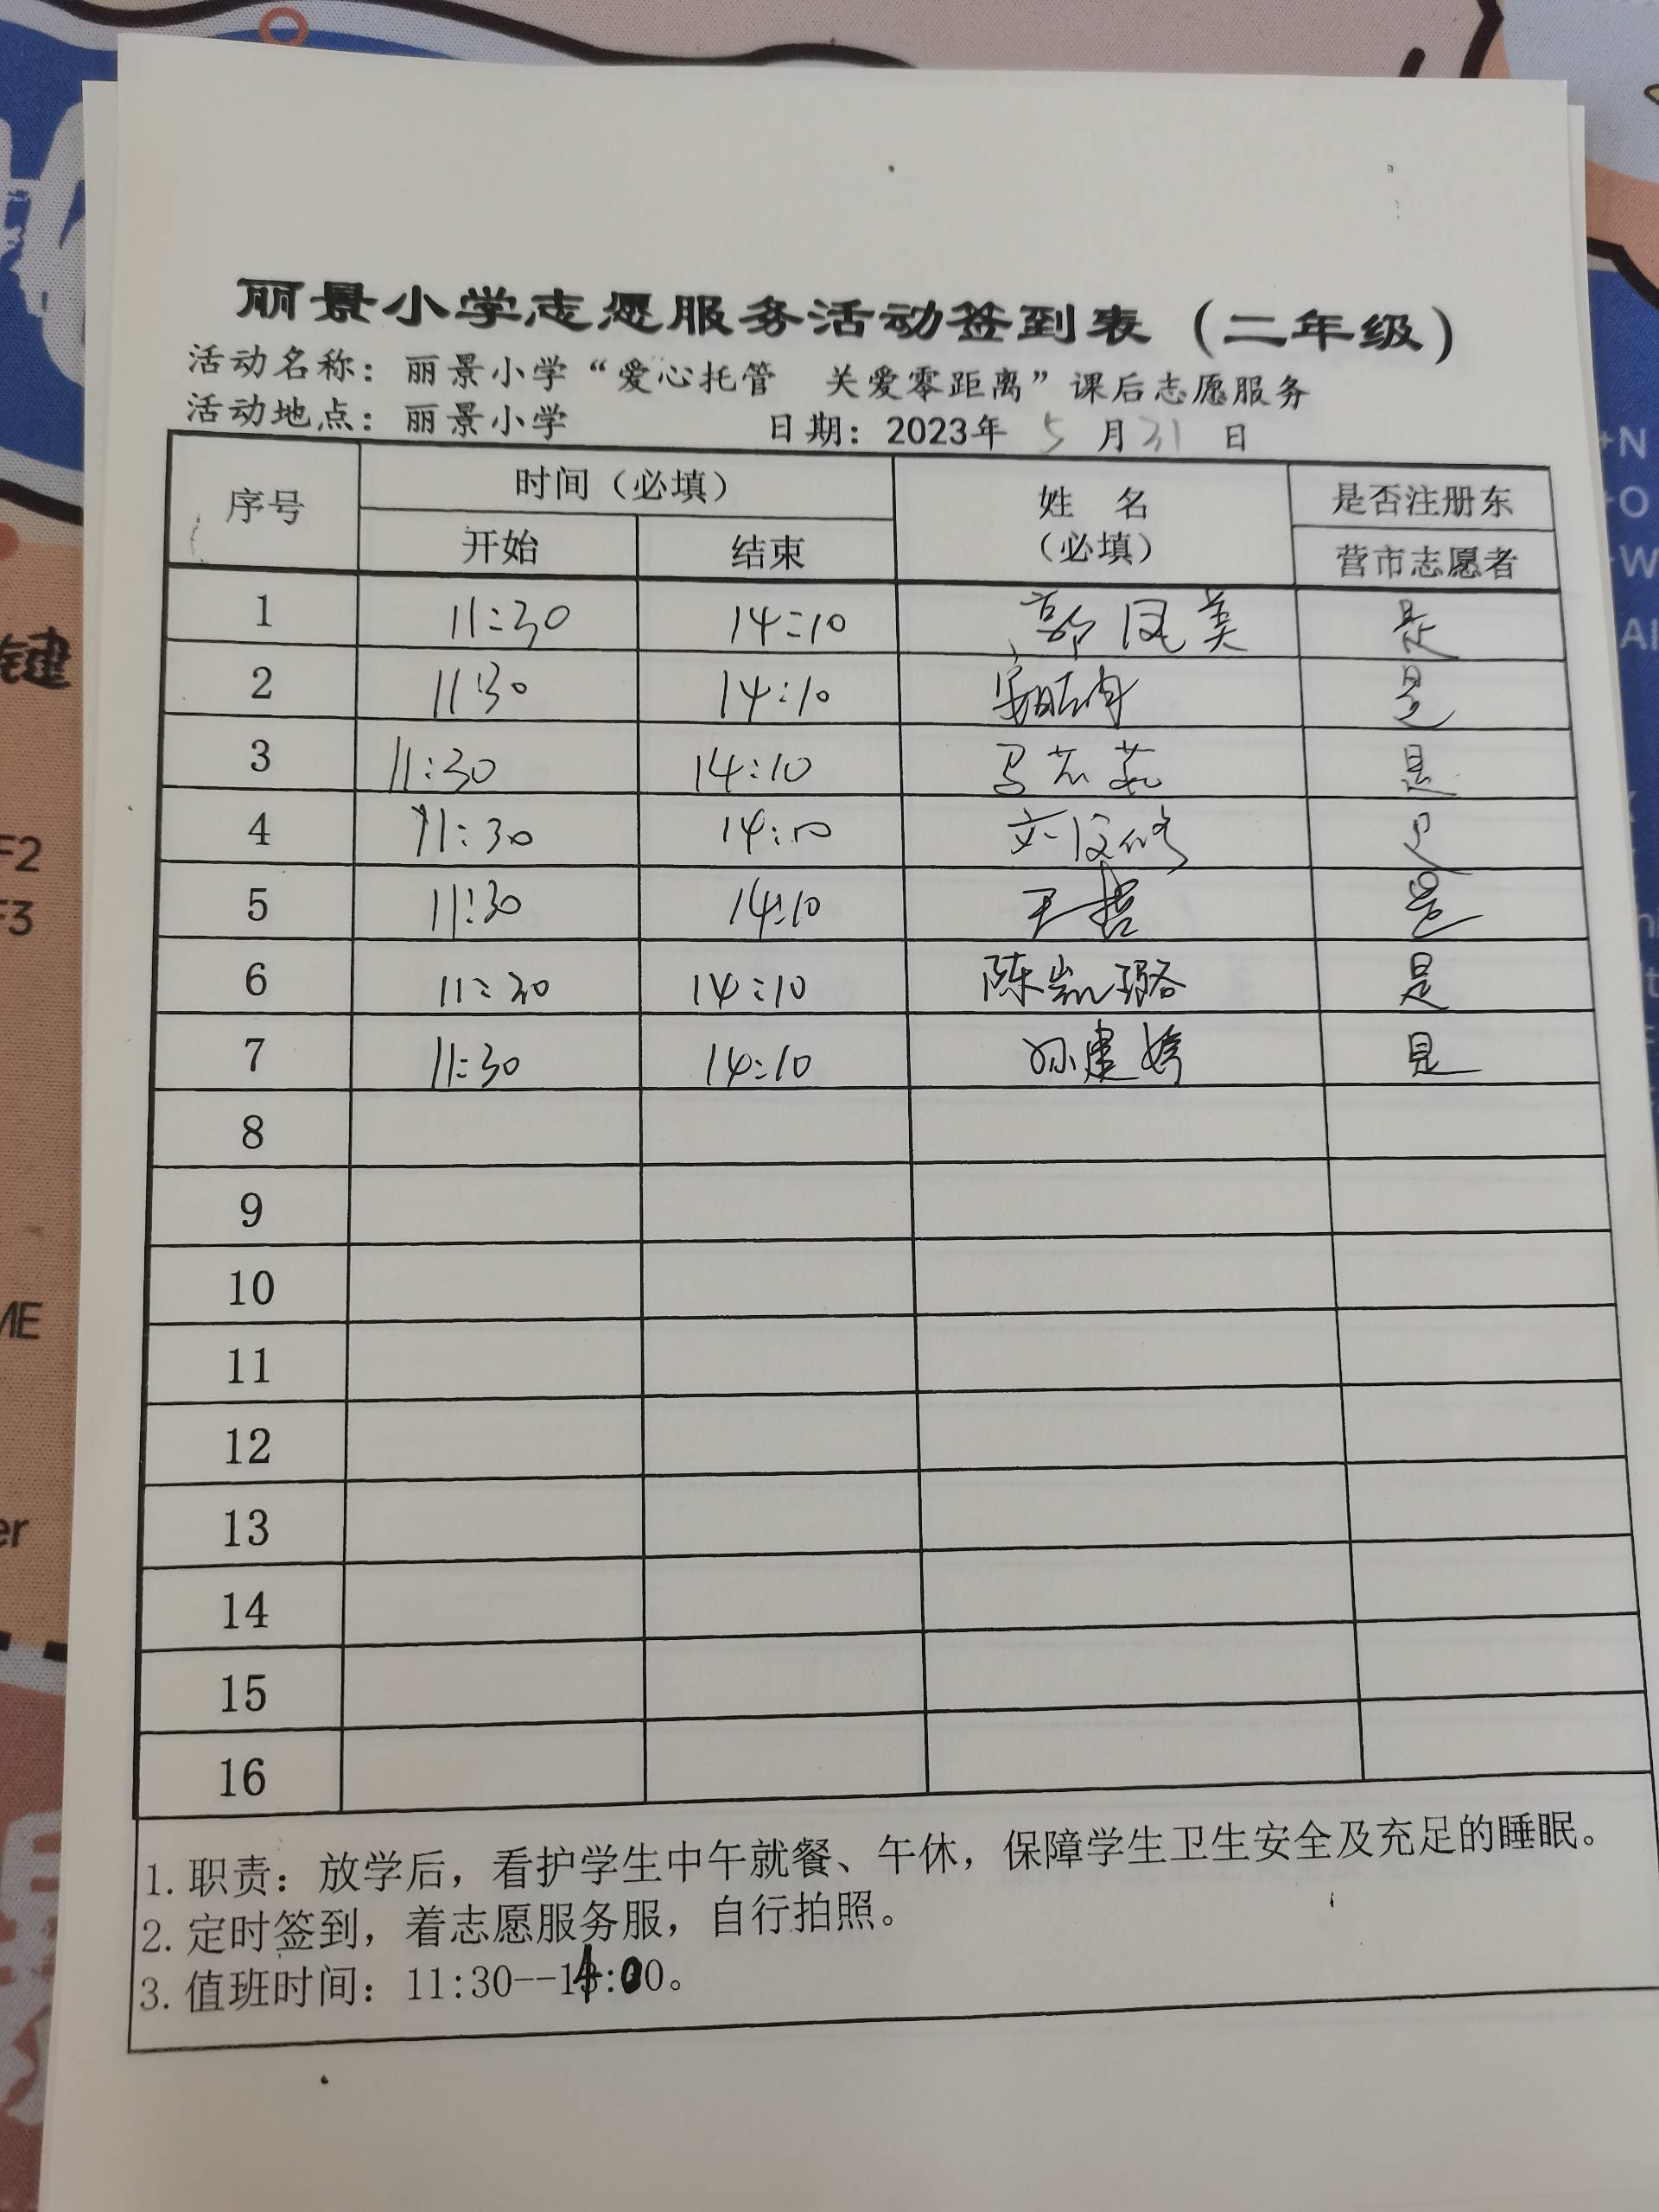 丽景小学志愿服务活动签到表（二年级）
活动名称：丽景小学“爱心托管 关爱零距离”课后志愿服务
活动地点：丽景小学 日期：2023年 5 月 31 日
序号 时间（必填） 姓 名（必填） 是否注册东营市志愿者
开始 结束
1 11:30 14:10 郭凤美 是
2 11:30 14:10 是
3 11:30 14:10 马芳茹 是
4 11:30 14:10 刘俊修 是
5 11:30 14:10 王 是
6 11:30 14:10 陈凯璐 是
7 11:30 14:10 孙建娇 是
8
9
10
11
12
13
14
15
16
1. 职责：放学后，看护学生中午就餐、午休，保障学生卫生安全及充足的睡眠。
2. 定时签到，着志愿服务服，自行拍照。
3. 值班时间：11:30--14:00。
键
F2
F3
ME
er
+N
+O
+W